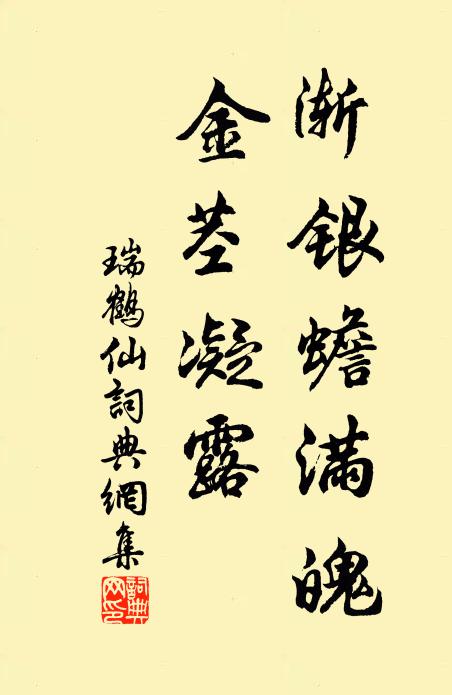 渐银蟾满魄
金茎凝露
瑞鶴仙詞典網集
詞典网印